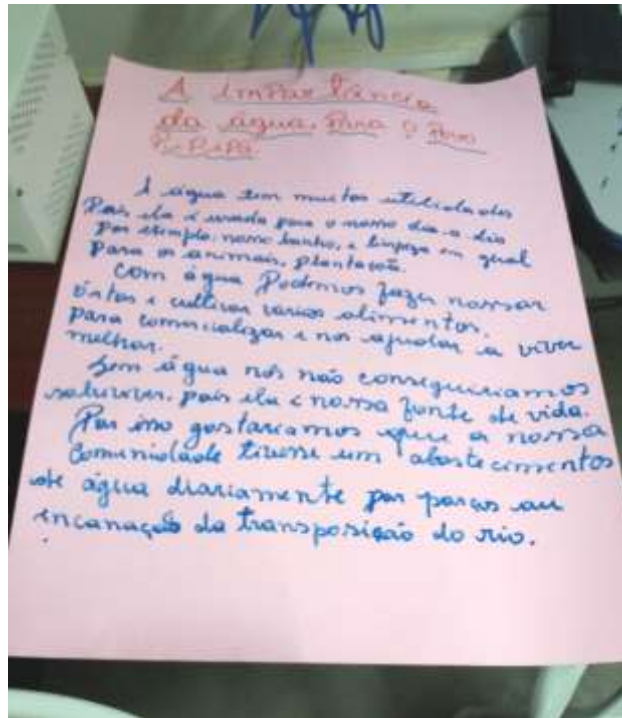 A importância
da água para o povo
Pipipã
A água tem muitas utilidades
Pois ela é usada para o nosso dia-a-dia
por exemplo: nosso banho, e limpeza em geral
para os animais, plantação.
Com água Podemos fazer nossas
ortas e cultivar varios alimentos,
para comercializar e nos ajudar a viver
melhor.
Sem água nós não conseguiriamos
sobreviver, pois ela é nossa fonte de vida.
Por isso gostariamos que a nossa
Comunidade tivesse um abastecimentos
de água diariamente por poços ou
incanação da transposição do rio.